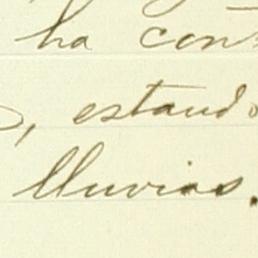 ha con
, estando
lluvias.